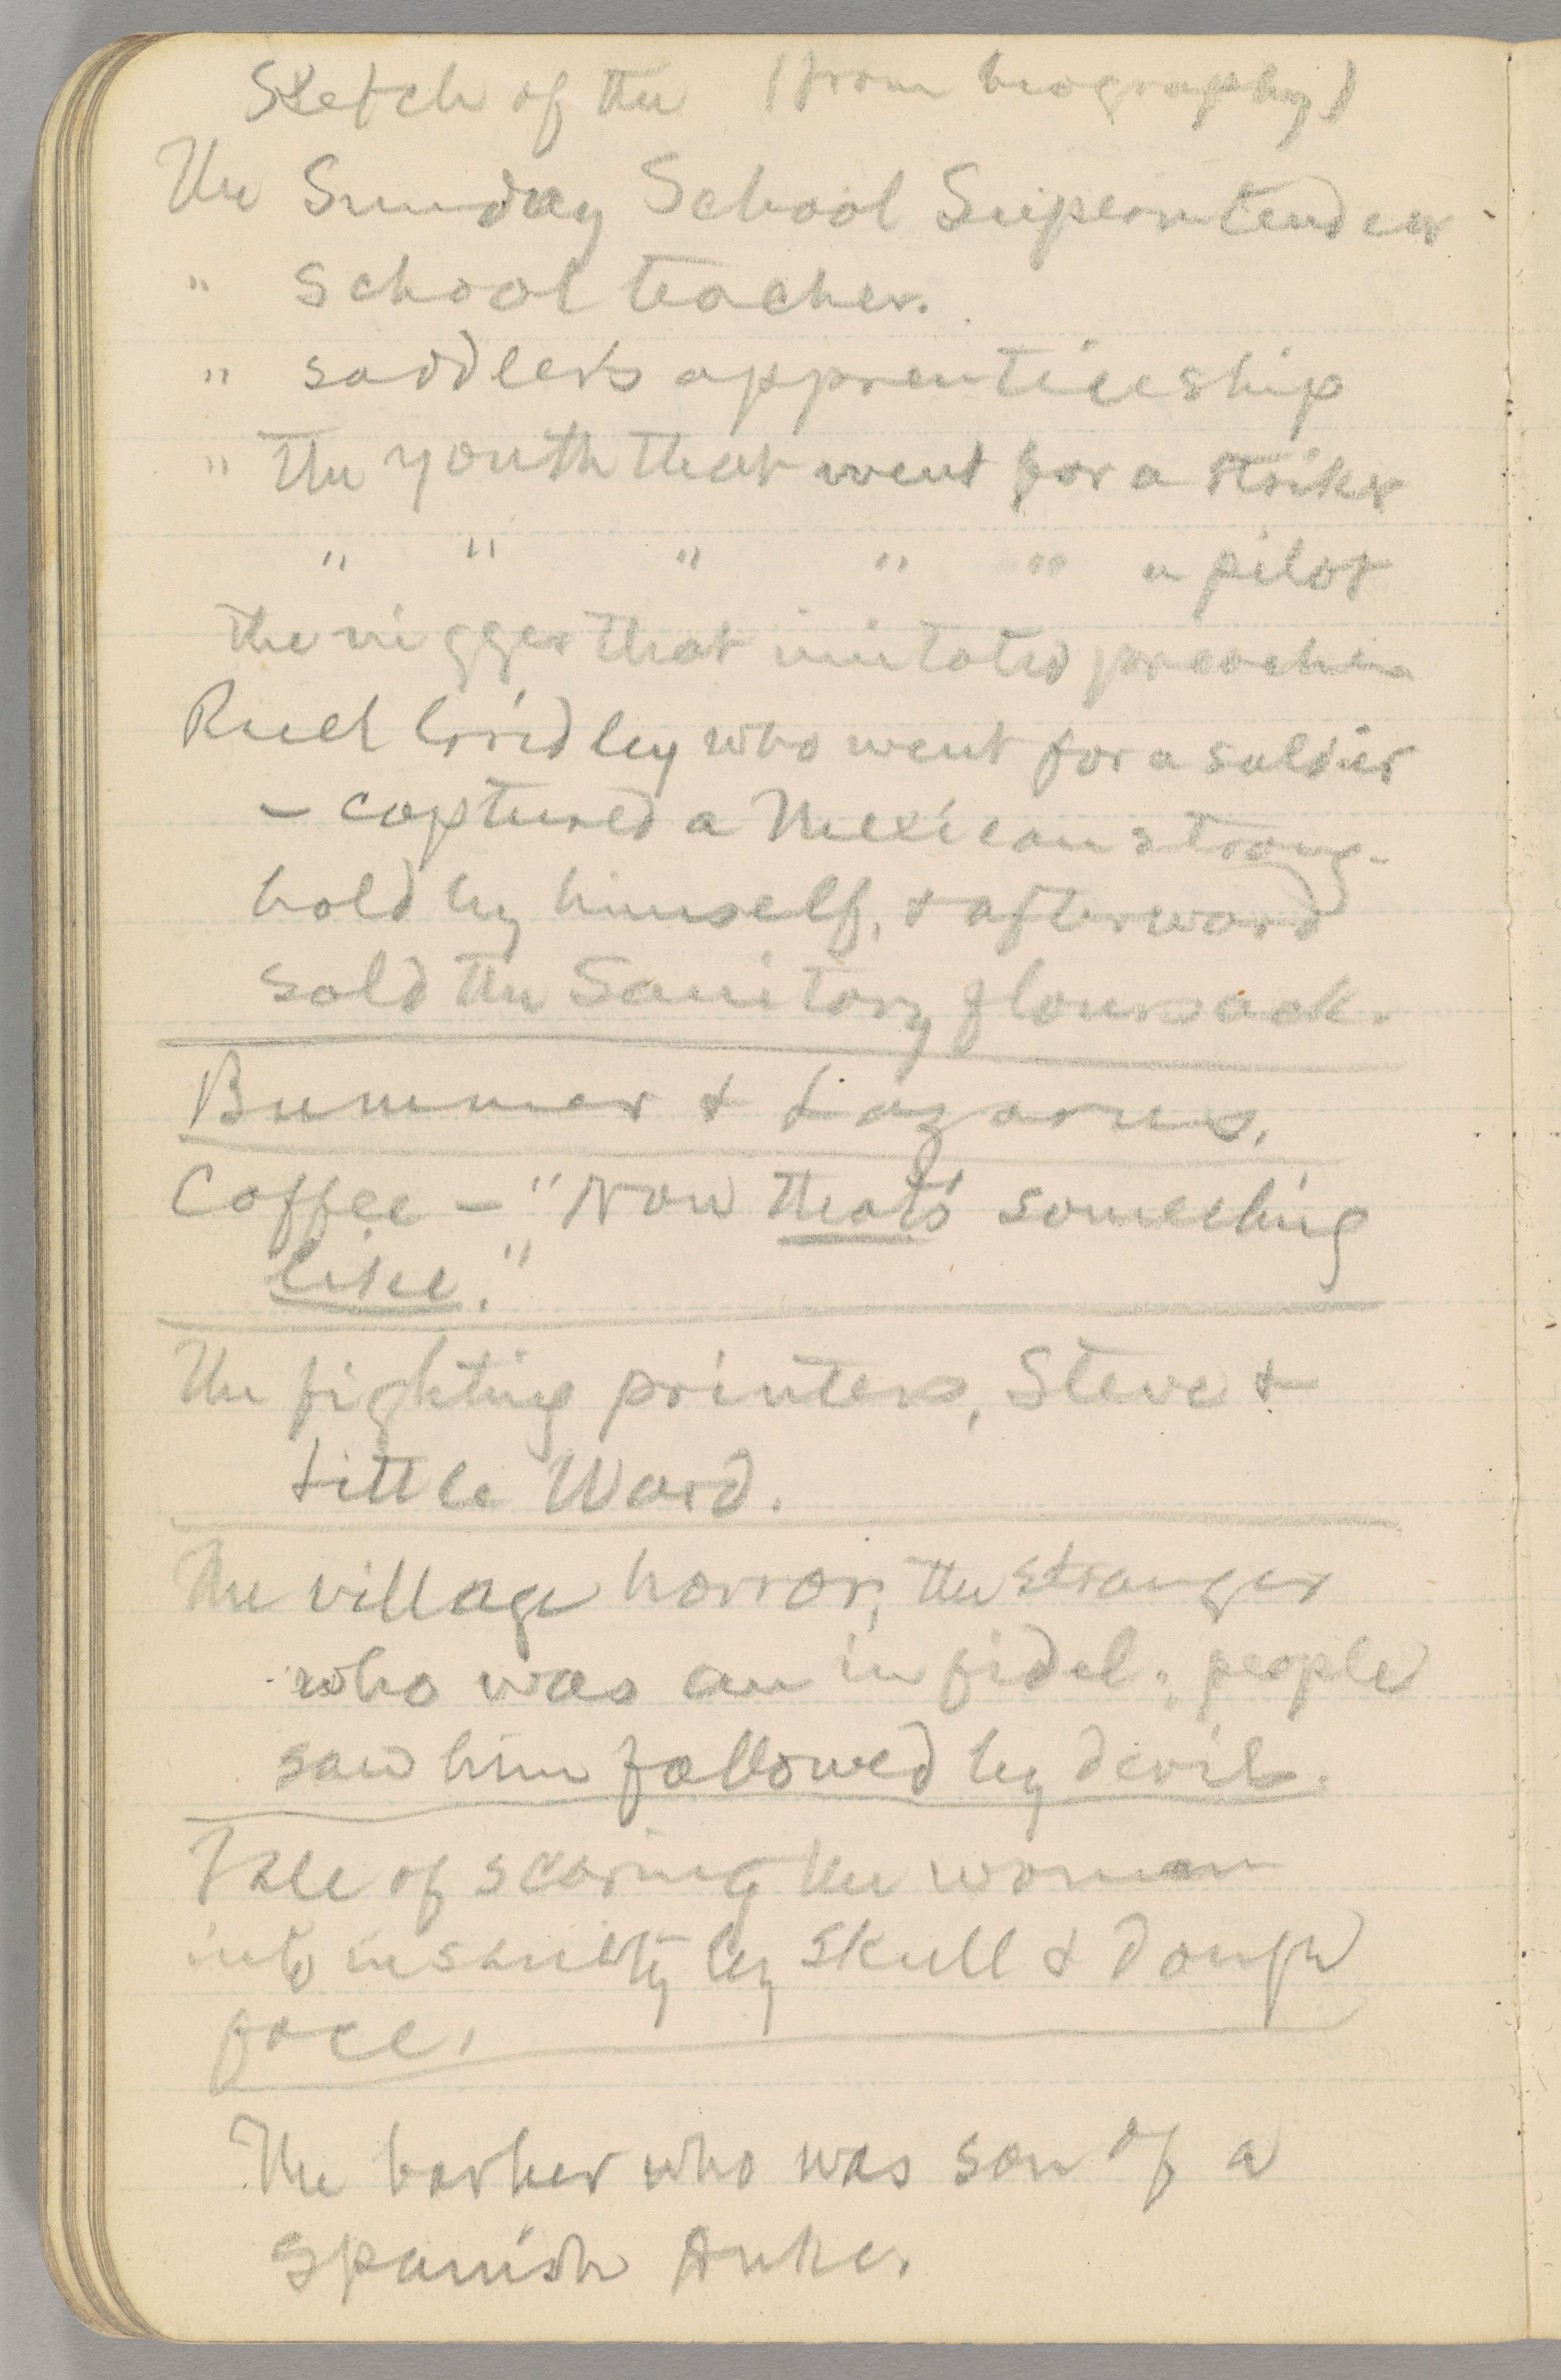 Sketch of the (from biography)
The Sunday School Superintendent
" School teacher.
" saddler's apprenticeship
" The youth that went for a striker
" " " " " a pilot
the nigger that imitated preacher
Ruel Gridley who went for a soldier
— captured a Mexican strong-
hold by himself, & afterward
sold the Sanitary floursack.
Bummer & Lazarus.
Coffee — "Now that's something
like."
The fighting printers, Steve &
Little Ward.
The village horror, the stranger
who was an infidel; people
saw him followed by devils.
Tale of scaring the woman
into insanity by skull & dough
face.
The barber who was son of a
Spanish Duke.